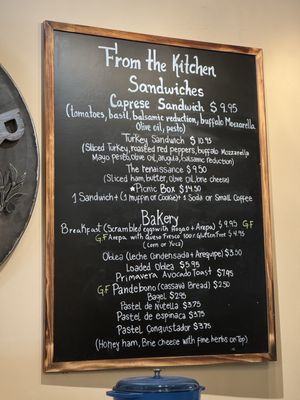 From the Kitchen
Sandwiches
Caprese Sandwich $9.95
(tomatoes, basil, balsamic reduction, buffalo Mozzarella
Olive oil, pesto)
Turkey Sandwich $10.95
(Sliced Turkey, roasted red peppers, buffalo Mozzarella
Mayo pesto, olive oil, arugula, balsamic reduction)
The renaissance $9.50
(Sliced ham, butter, Olive oil, brie cheese)
★Picnic Box $14.50
1 Sandwich + (1 muffin or Cookie) + 1 Soda or Small Coffee
Bakery
Breakfast (Scrambled eggs with Hogao + Arepa) $9.95 GF
GF Arepa with Queso Fresco 100% Gluten Free $4.95
(Corn or Yuca)
Oblea (Leche Condensada + Arequipe) $3.50
Loaded Oblea $5.95
Primavera Avocado Toast $7.95
GF Pandebono (Cassava Bread) $2.50
Bagel $2.95
Pastel de Nutella $3.75
Pastel de espinaca $3.75
Pastel Conquistador $3.75
(Honey ham, Brie cheese with fine herbs on Top)